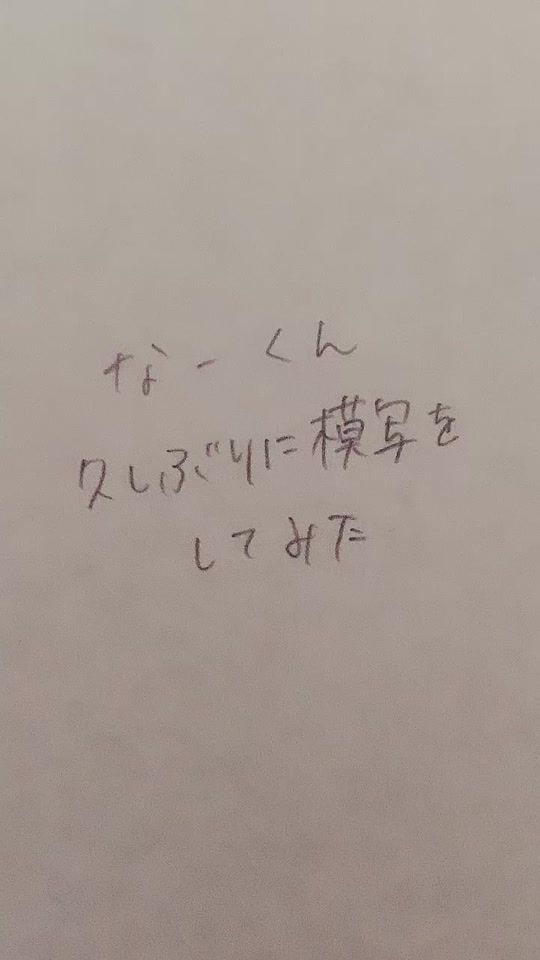 なーくん
久しぶりに模写を
してみた